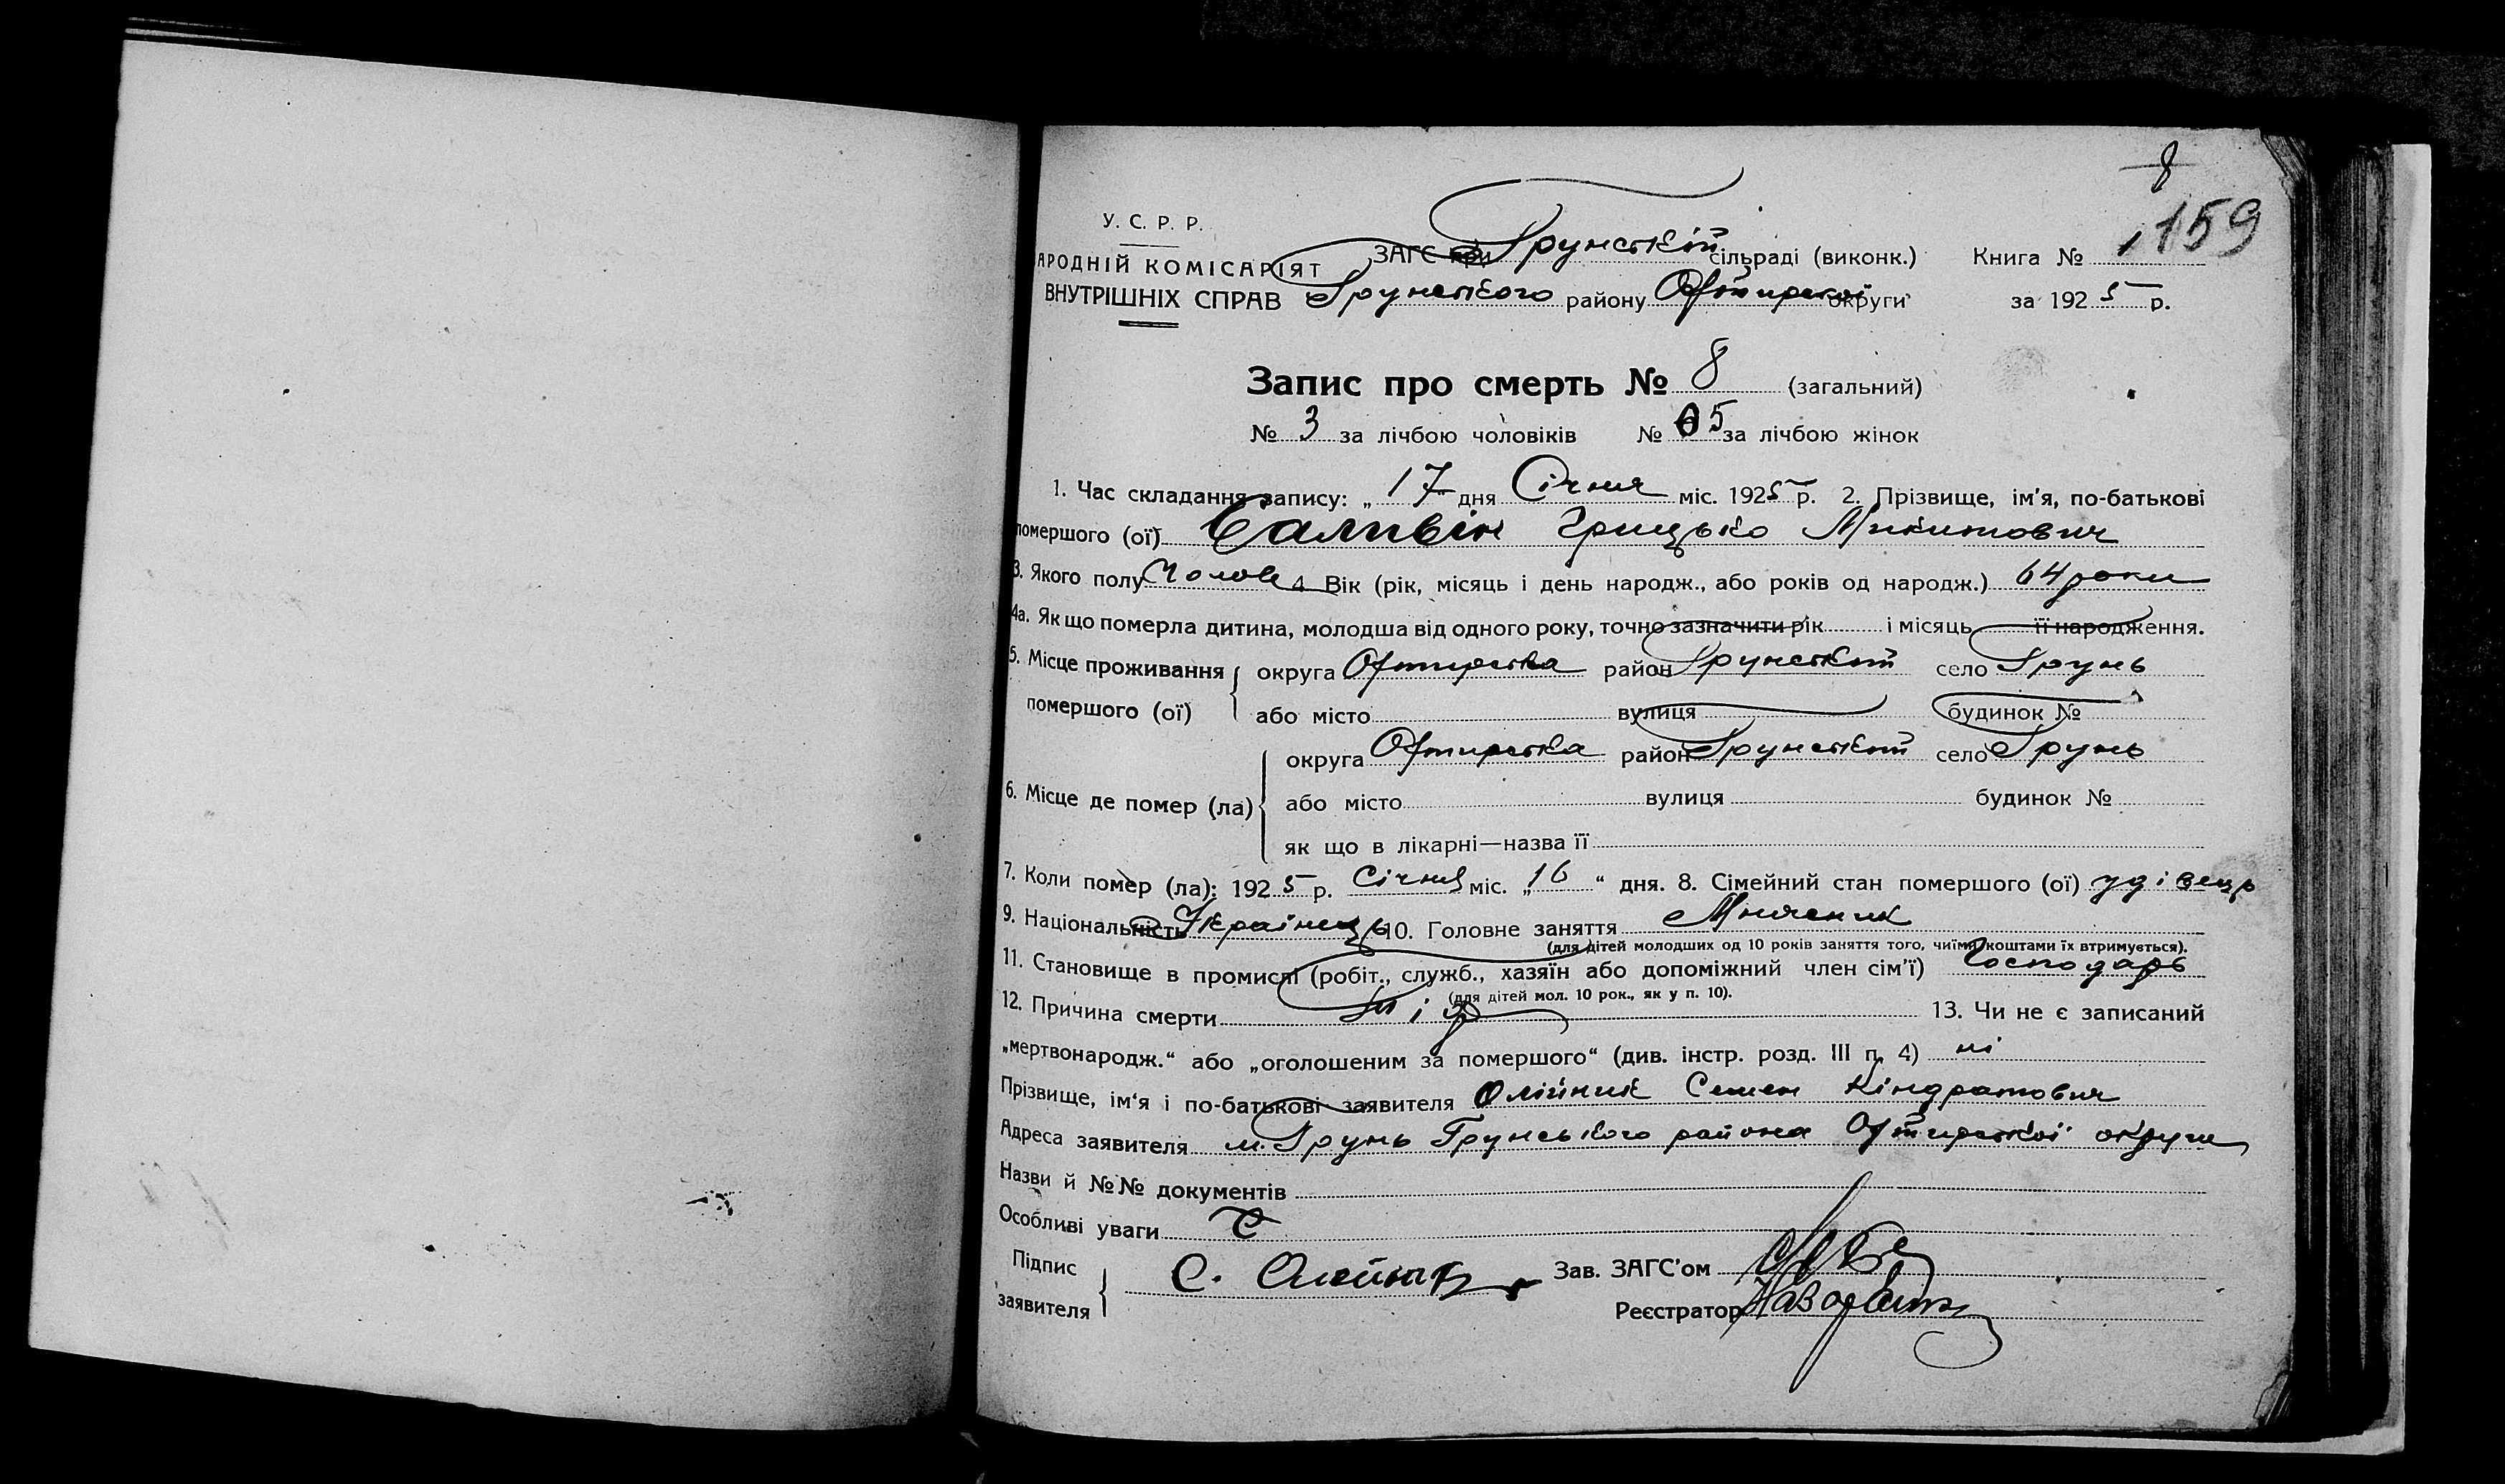 8
159
У. С. Р. Р.
АРОДНІЙ КОМІСАРІЯТ
ВНУТРІШНІХ СПРАВ
ЗАГС при Грунській сільраді (виконк.)
Грунського району Охтирської округи
Книга № 1
за 1925 р.
Запис про смерть № 8 (загальний)
№ 3 за лічбою чоловіків № 5 за лічбою жінок
1. Час складання запису: „17" дня Січня міс. 1925 р. 2. Прізвище, ім'я, по-батькові
помершого (ої) Саливін Грицько Микитович
3. Якого полу Чолов 4. Вік (рік, місяць і день народж., або років од народж.) 64 роки
4а. Як що померла дитина, молодша від одного року, точно зазначити рік і місяць її народження.
5. Місце проживання округа Охтирська район Грунський село Грунь
помершого (ої) або місто вулиця будинок №
округа Охтирська район Грунський село Грунь
6. Місце де помер (ла) або місто вулиця будинок №
як що в лікарні—назва її
7. Коли помер (ла): 1925 р. Січня міс. „16" дня. 8. Сімейний стан помершого (ої) удівець
9. Національність Українець 10. Головне заняття
(для дітей молодших од 10 років заняття того, чиїми коштами їх втримується).
11. Становище в промислі (робіт., служб., хазяїн або допоміжний член сім'ї) Господарь
(для дітей мол. 10 рок., як у п. 10).
12. Причина смерти тіф 13. Чи не є записаний
„мертвонародж." або „оголошеним за помершого" (див. інстр. розд. III п. 4) ні
Прізвище, ім'я і по-батькові заявителя Олійник Семен Кіндратович
Адреса заявителя м. Грунь Грунського района Охтирської округи
Назви й №№ документів
Особливі уваги
Підпис
заявителя
С. Олейник
Зав. ЗАГС'ом
Реєстратор